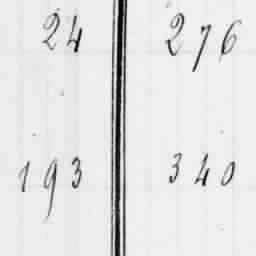 24 276
193 340